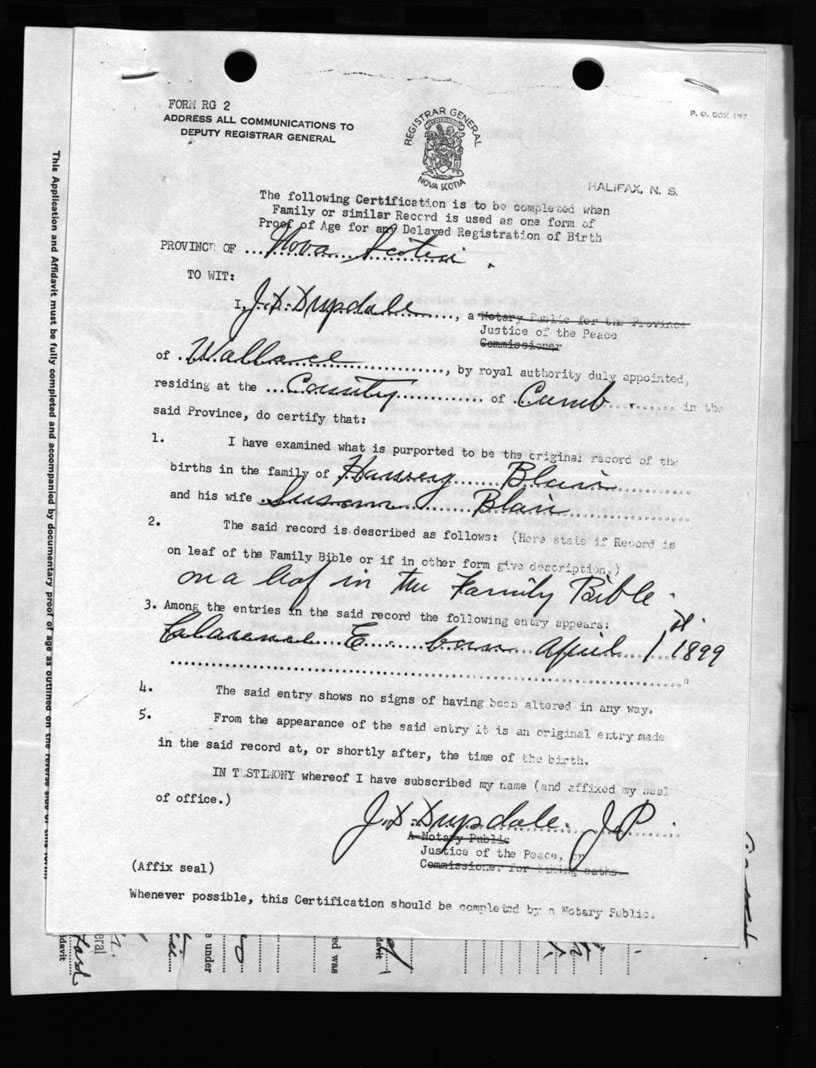 FORM RG 2
ADDRESS ALL COMMUNICATIONS TO
DEPUTY REGISTRAR GENERAL
REGISTRAR GENERAL
NOVA SCOTIA
P. O. BOX
HALIFAX, N. S.
The following Certification is to be completed when
Family or similar Record is used as one form of
Proof of Age for any Delayed Registration of Birth
PROVINCE OF Nova Scotia
TO WIT:
I, J. D. Drysdale, a Notary Public for the Province
Justice of the Peace
Commissioner
of Wallace, by royal authority duly appointed,
residing at the County of Cumb. in the
said Province, do certify that:
1. I have examined what is purported to be the original record of the
births in the family of Harvey Blair
and his wife Susan Blair
2. The said record is described as follows: (Here state if Record is
on leaf of the Family Bible or if in other form give description.)
on a leaf in the Family Bible.
3. Among the entries in the said record the following entry appears:
Clarence E. born April 1st. 1899
"
4. The said entry shows no signs of having been altered in any way.
5. From the appearance of the said entry it is an original entry made
in the said record at, or shortly after, the time of the birth.
IN T STIMONY whereof I have subscribed my name (and affixed my seal
of office.)
J. D. Drysdale. J.P.
A Notary Public
Justice of the Peace, or
Commissioner for taking oaths
(Affix seal)
Whenever possible, this Certification should be completed by a Notary Public.
This Application and Affidavit must be fully completed and accompanied by documentary proof of age as outlined on the reverse side of this form
eral
davit
e under
red was
davit